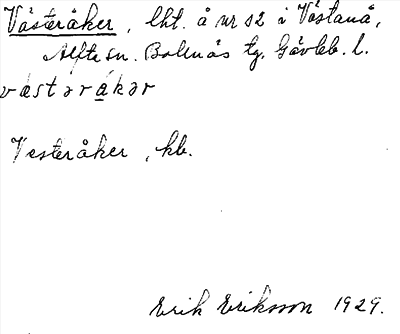 Västeråker, lht. å nr 52 i Västanå,
Alfta sn. Bollnäs tg. Gävleb. l.
væstəråkər
Vesteråker, kb.
Erik Eriksson 1929.